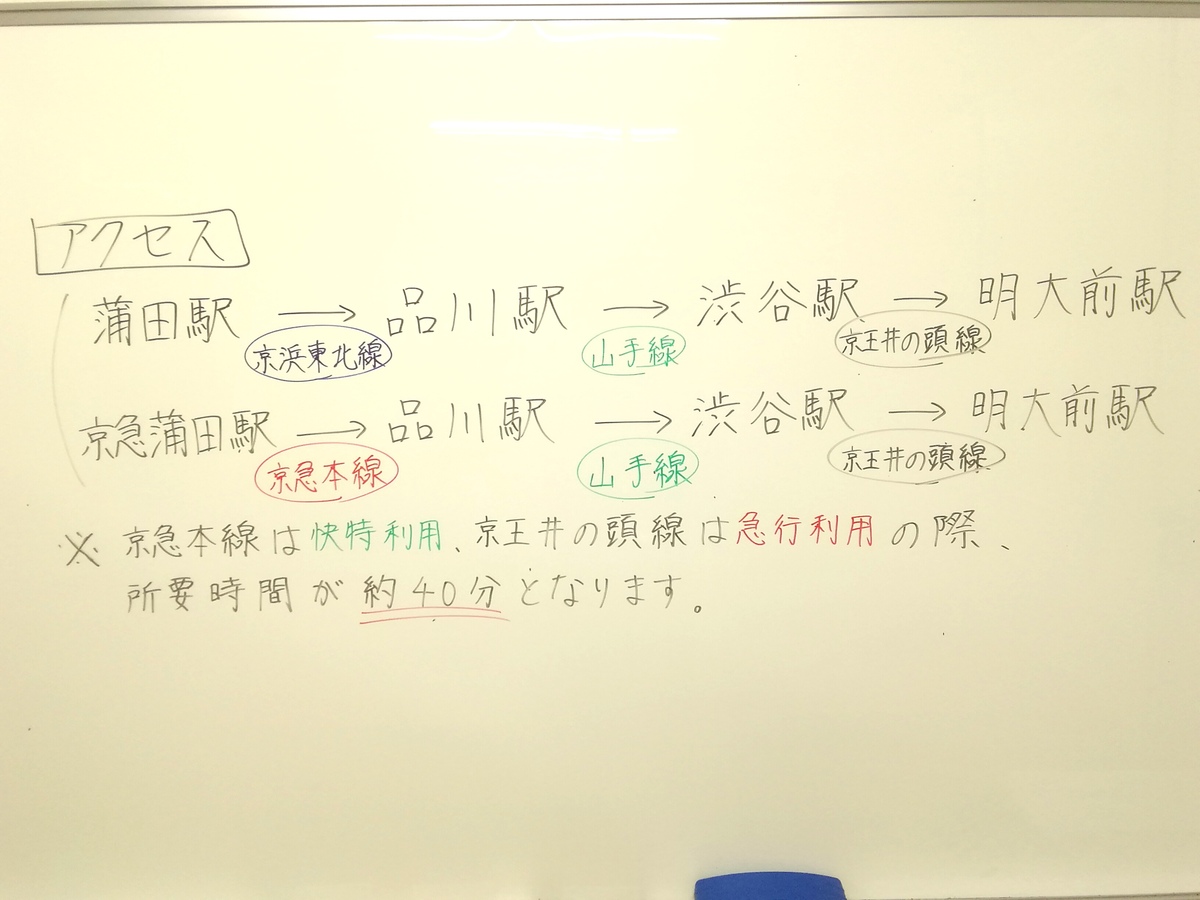 アクセス
蒲田駅 → 品川駅 → 渋谷駅 → 明大前駅
京浜東北線 山手線 京王井の頭線
京急蒲田駅 → 品川駅 → 渋谷駅 → 明大前駅
京急本線 山手線 京王井の頭線
※ 京急本線は快特利用、京王井の頭線は急行利用の際、
所要時間が約40分となります。